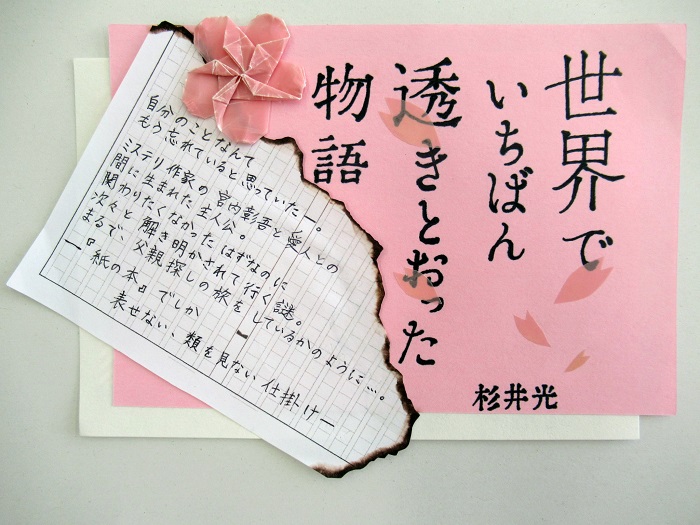 世界で
いちばん
透きとおった
物語
杉井光
自分のことなんて
もう忘れていると思っていたー。
ミステリ作家の宮内彰吾と愛人との
間に生まれた主人公。
関わりたくなかったはずなのに
次々と解き明かされて行く謎。
まるで、父親探しの旅をしているかのように…。
―『紙の本』でしか
表せない、類を見ない仕掛け―